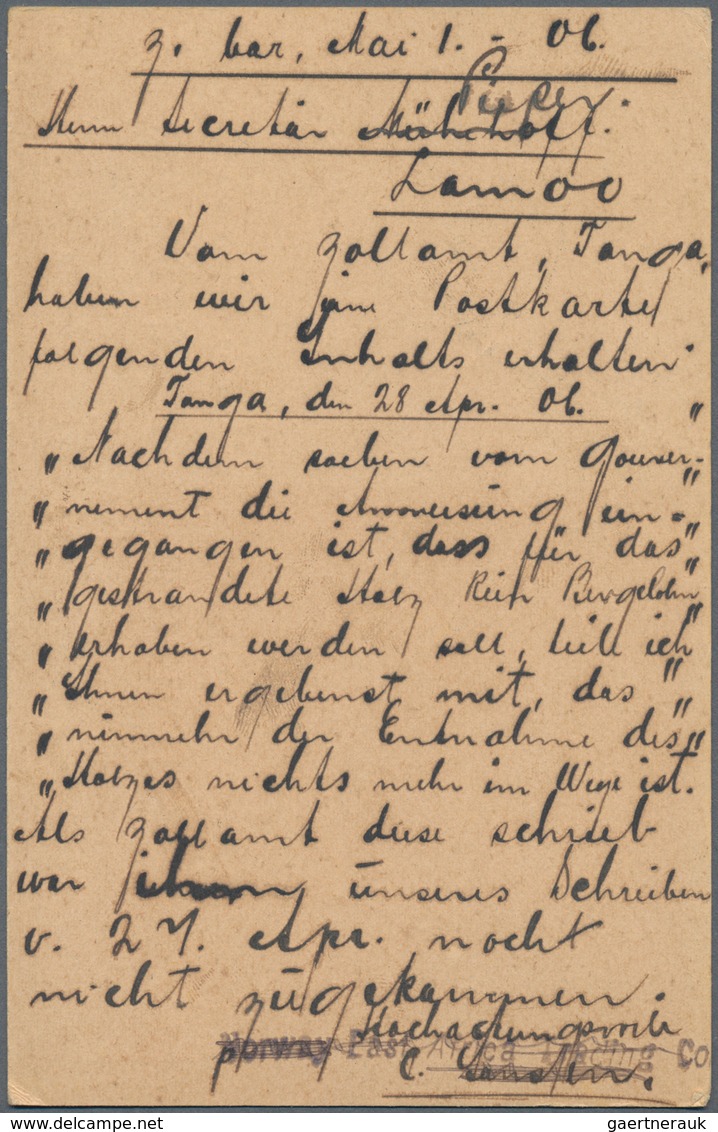 z. bar, Mai 1. - 06.
Pieper.
Herrn Secretär
Lamoo
Vom Zollamt, Tanga,
haben wir eine Postkarte
folgenden Inhalts erhalten:
Tanga, den 28 Apr. 06. "
" Nachdem soeben vom Gouver-
" nement die Anweisung ein- "
" gegangen ist, dass für das "
" gestrandete Holz kein Bergelohn "
" erhoben werden soll, teile ich "
" Ihnen ergebenst mit, das "
" nunmehr der Entnahme des "
" Holzes nichts mehr im Wege ist.
Als Zollamt diese schrieb
war ihnen unseres Schreiben
v. 27. Apr. noch
nicht zugekommen.
Hochachtungsvoll
Norway East Africa Trading Co
p C.
gaertnerauk